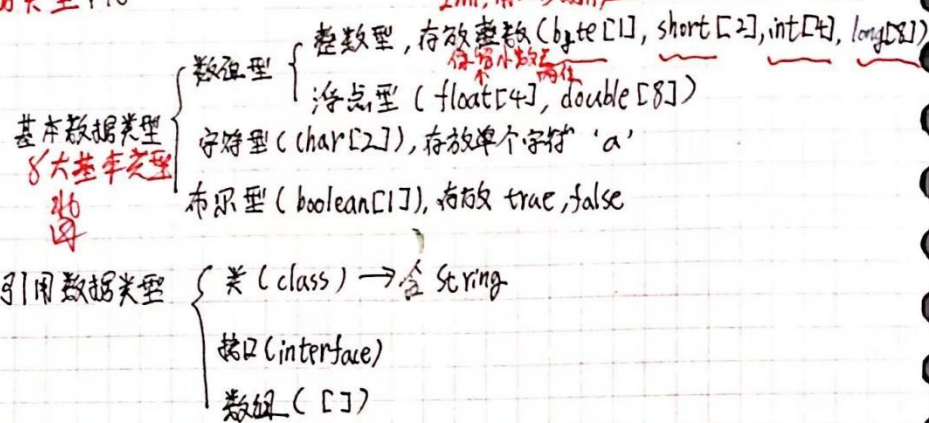 数值型
整数型,存放整数(byte[1], short[2],int[4], long[8])
保留小数点
两位
浮点型(float[4], double[8])
基本数据类型
字符型(char[2]),存放单个字符 'a'
8大基本类型
布尔型(boolean[1]),存放 true,false
引用数据类型
类(class)→含 String
接口(interface)
数组([])